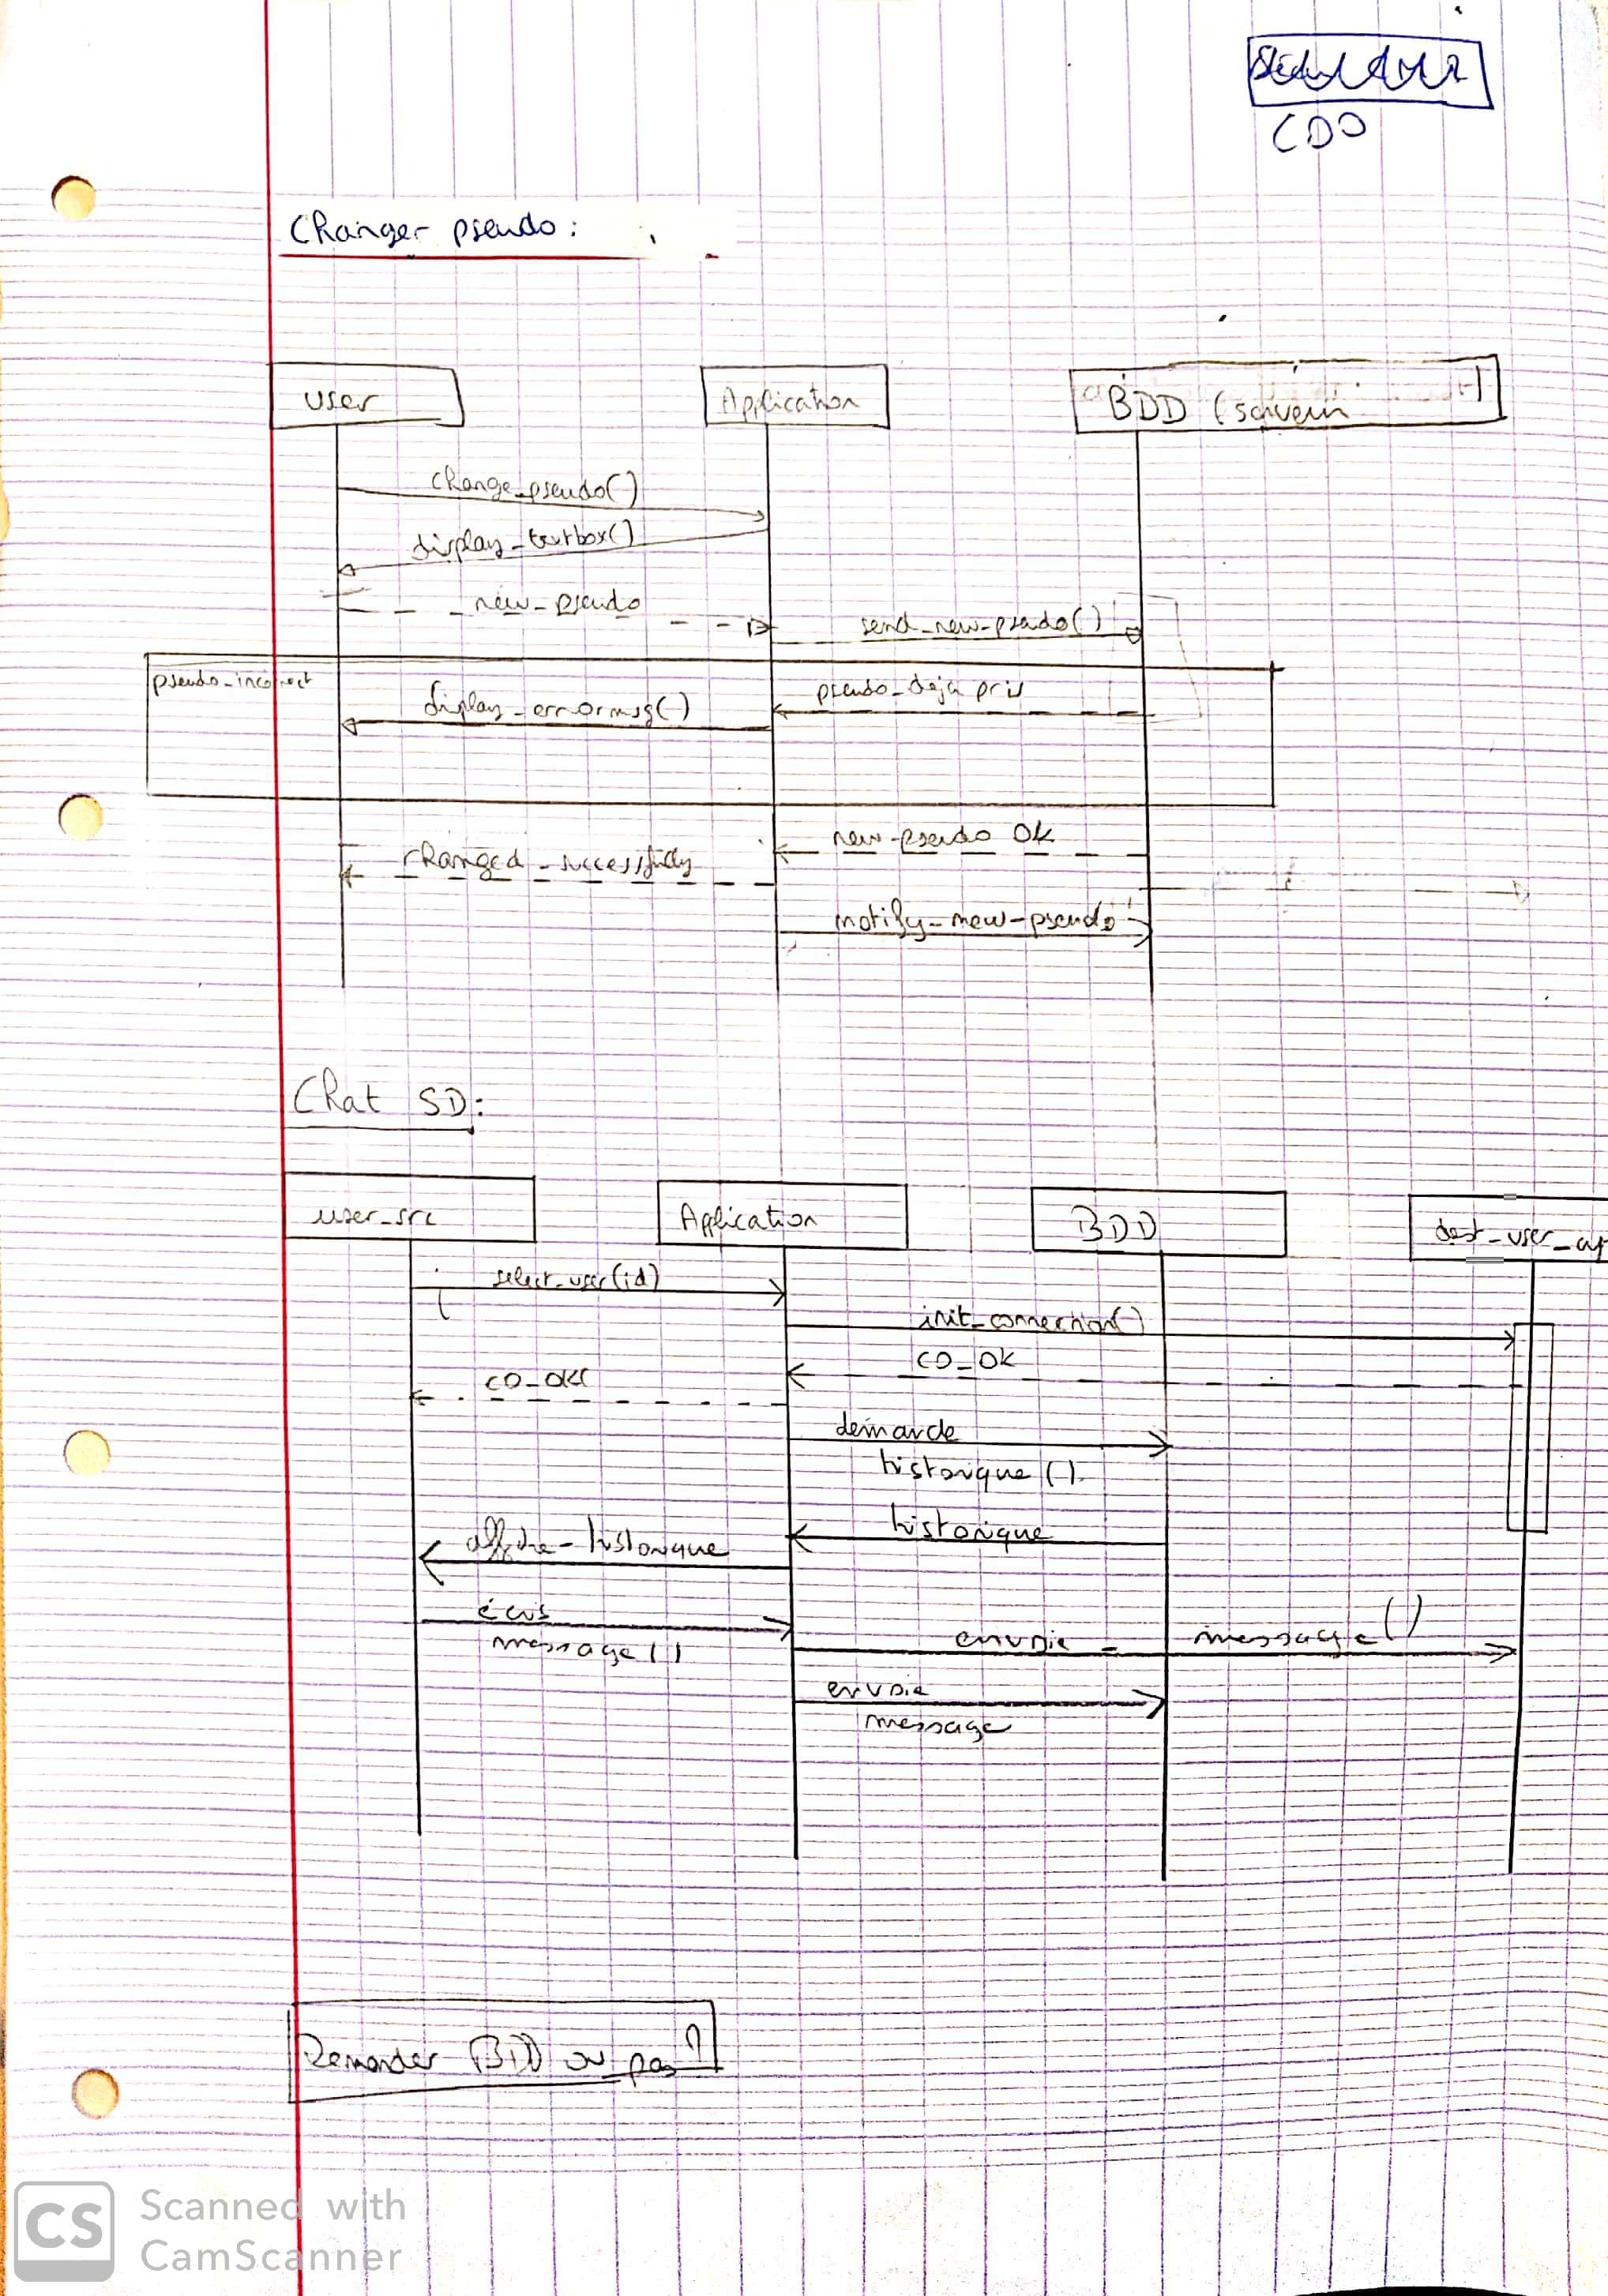 CDO
Changer pseudo :
user
Application
BDD (serveur
change_pseudo()
display_textbox()
new_pseudo
send_new_pseudo()
pseudo_incorrect
pseudo_deja pris
display_errormsg()
new_pseudo OK
changed_successfully
notify_new_pseudo
Chat SD:
user_src
Application
BDD
dest_user_ap
select_user(id)
init_connection()
co_ok
co_ok
demande
historique ()
historique
affiche_historique
écris
message ()
envoie_message()
envoie
message
Demander BDD ou pas ?
CS
Scanned with
CamScanner